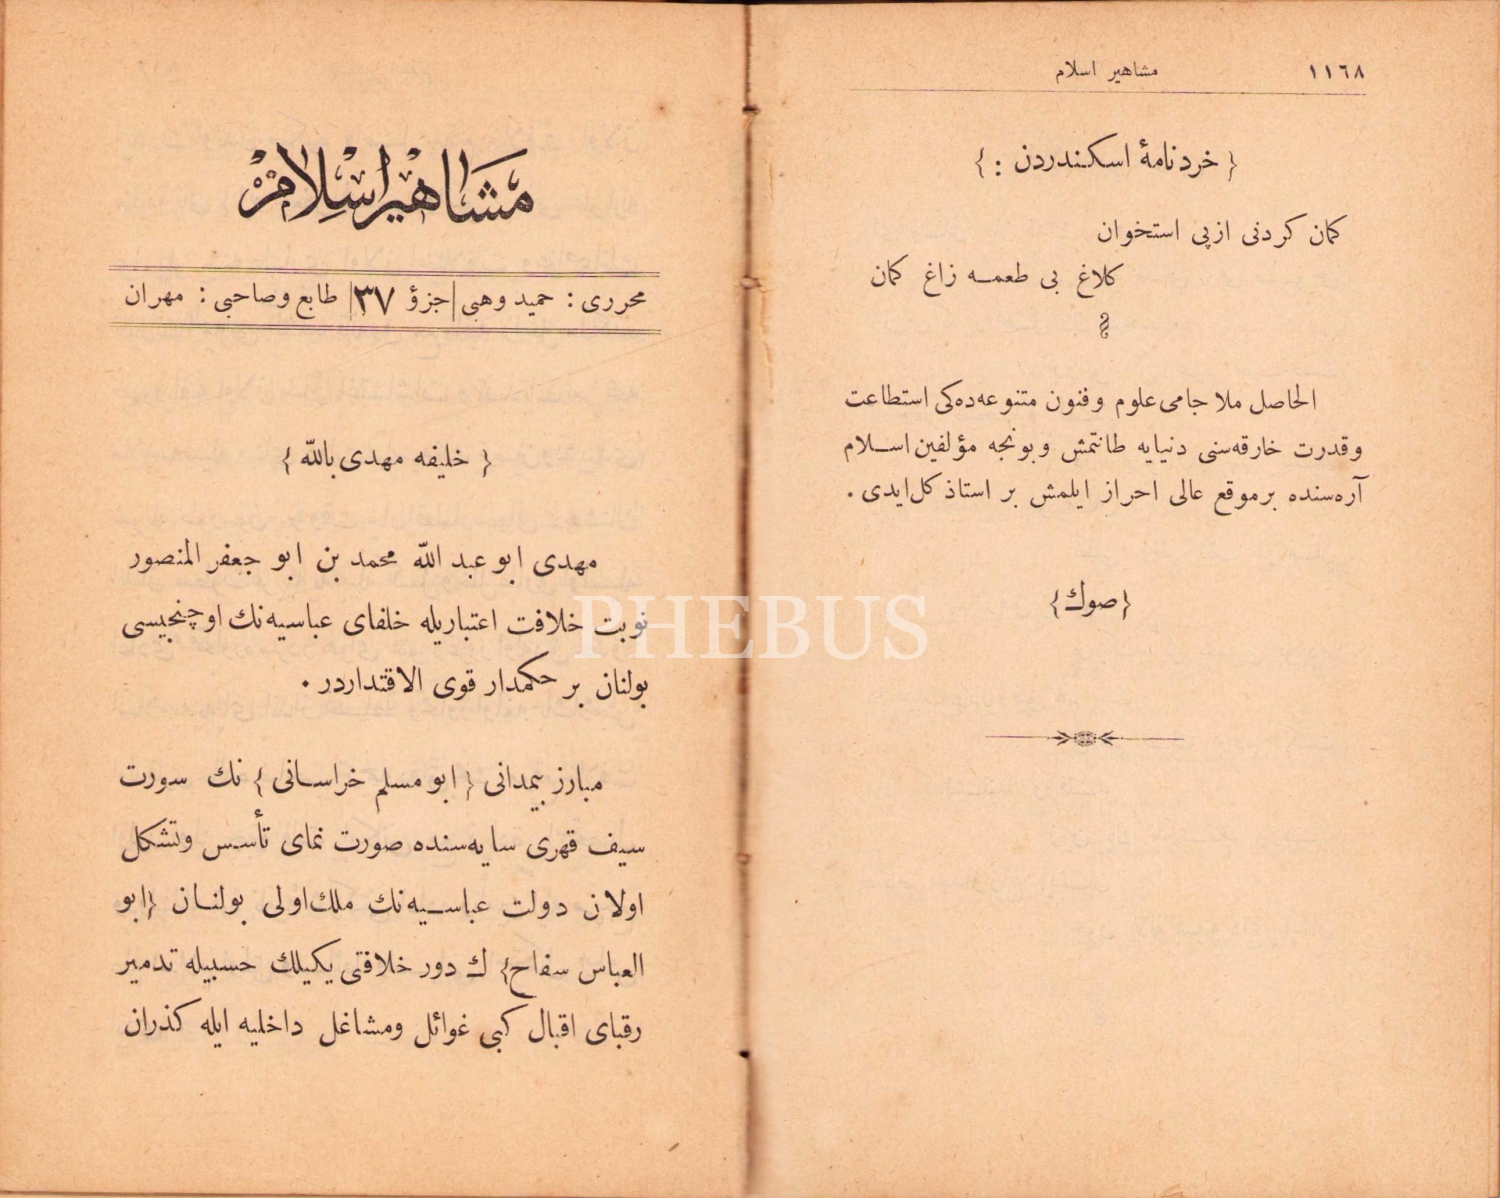 ١١٦٨ مشاهیر اسلام
﴿ خردنامهٔ اسكندردن : ﴾
كمان كردنی ازپی استخوان
كلاغ بی طعمه زاغ كمان
الحاصل ملا جامی علوم وفنون متنوعه‌ده‌كی استطاعت
وقدرت خارقه‌سنی دنیایه طانتمش وبونجه مؤلفین اسلام
آره‌سنده برموقع عالی احراز ایلمش بر استاذ كل ایدی .
﴿صوك﴾
مشاهیر اسلام
محرری : حمید وهبی | جزؤ ٣٧ | طابع وصاحبی : مهران
﴿ خلیفه مهدی بالله ﴾
مهدی ابو عبد الله محمد بن ابو جعفر المنصور
نوبت خلافت اعتباریله خلفای عباسیه‌نك اوچنجیسی
بولنان بر حكمدار قوی الاقتداردر .
مبارز بیمدانی ﴿ ابو مسلم خراسانی ﴾ نك سورت
سیف قهری سایه‌سنده صورت نمای تأسس وتشكل
اولان دولت عباسیه‌نك ملك اولی بولنان ﴿ابو
العباس سفاح﴾ ك دور خلافتی یكیلك حسبیله تدمیر
رقبای اقبال كبی غوائل ومشاغل داخلیه ایله كذران
PHEBUS